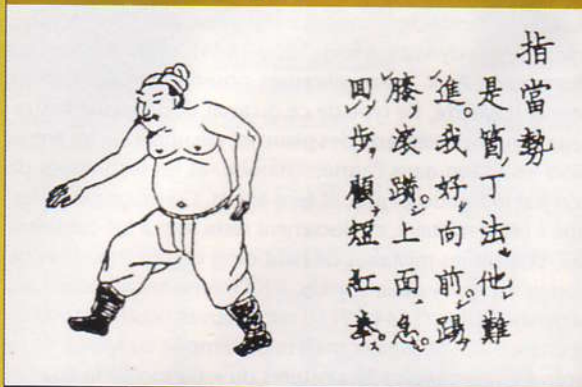 指當勢
是箇丁法他難
進我好向前踢
膝滚躦上面急
囬步顛短紅拳